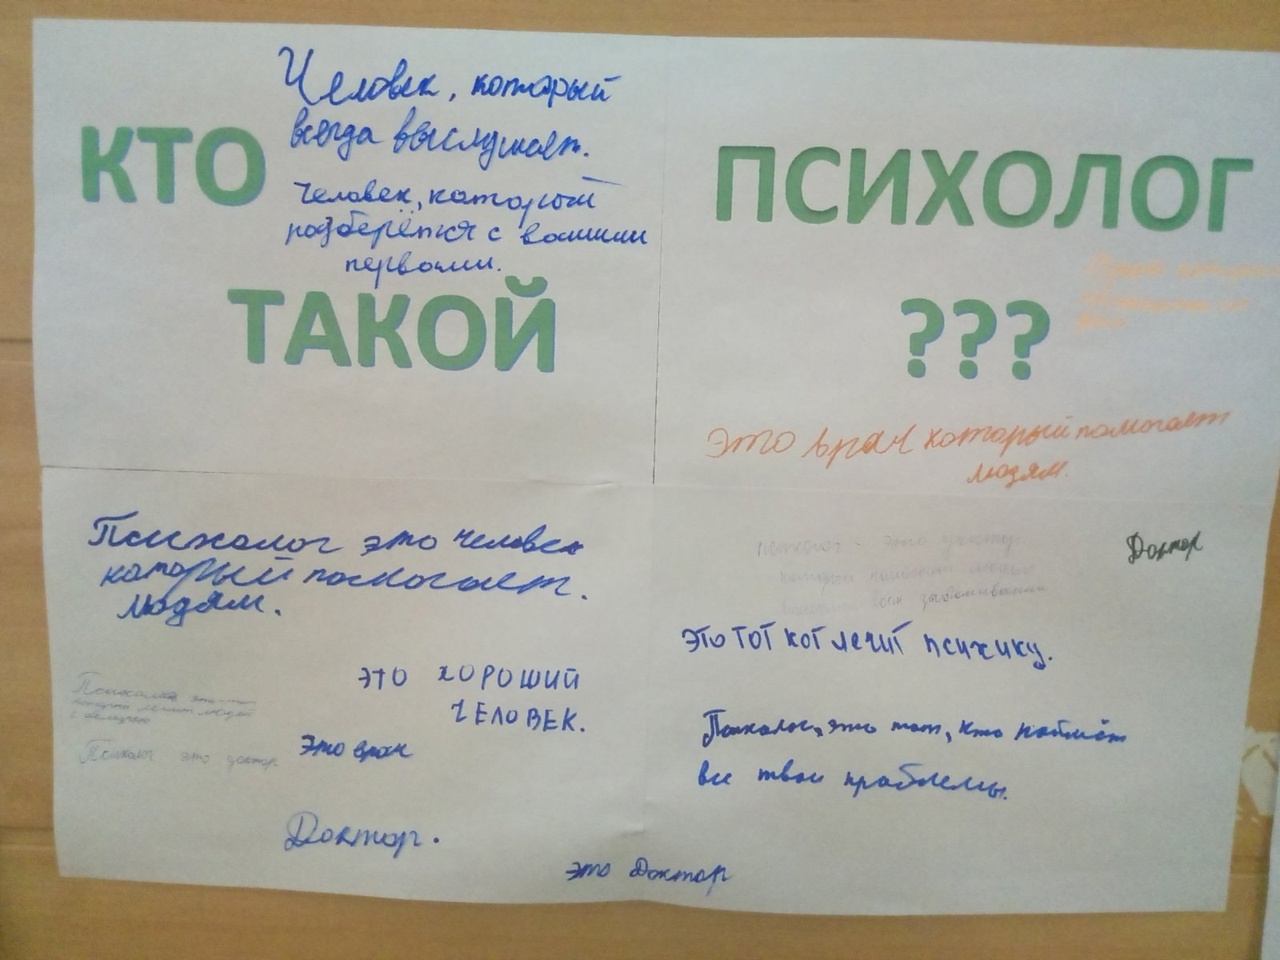 КТО
Человек, который
всегда выслушает.
Человек, который
разберётся с вашими
нервами.
ТАКОЙ
ПСИХОЛОГ
???
Это врач который помогает
людям.
Психолог это человек
который помогает.
людям.
это хороший
человек.
Психолог это доктор
Это врач
Доктор.
это Доктор
Психолог - это доктор
Доктор
это тот кот лечит психику.
Психолог, это тот, кто поймёт
все твои проблемы.